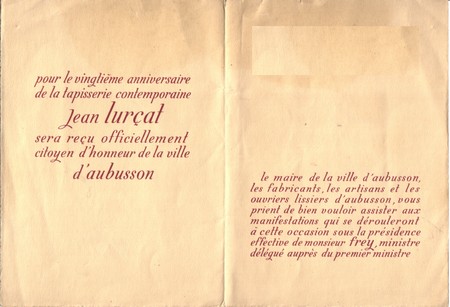 pour le vingtième anniversaire
de la tapisserie contemporaine
Jean lurçat
sera reçu officiellement
citoyen d'honneur de la ville
d'aubusson
le maire de la ville d'aubusson,
les fabricants, les artisans et les
ouvriers lissiers d'aubusson, vous
prient de bien vouloir assister aux
manifestations qui se dérouleront
à cette occasion sous la présidence
effective de monsieur frey, ministre
délégué auprès du premier ministre